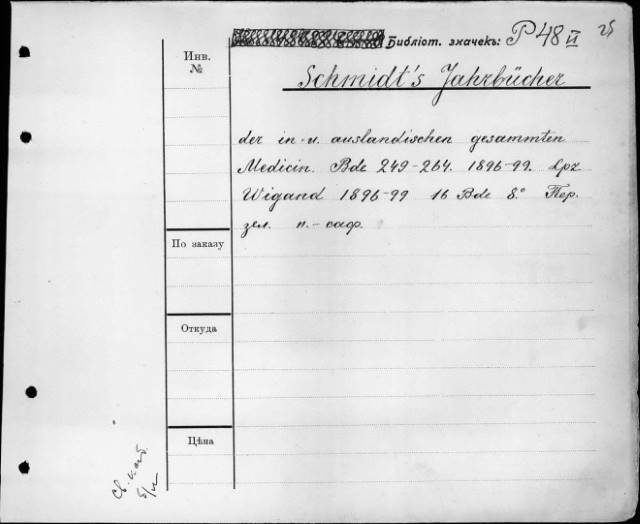 Библіот. значекъ: P 48 II 25
Инв.
№
Schmidt's Jahrbücher
der in- u. auslandischen gesammten
Medicin. Bde 249-264. 1896-99. Lpz
Wigand 1896-99 16 Bde 8.° Пер.
зел. п.-саф.
По заказу
Откуда
Цѣна
Св. каб.
б/н